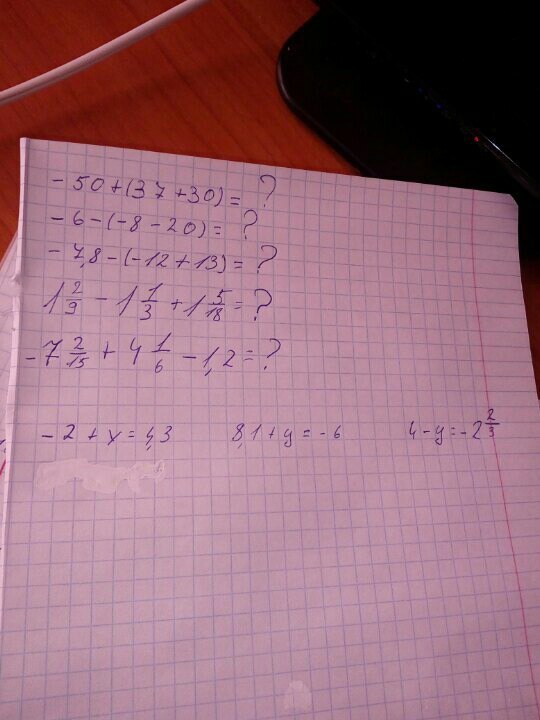 -50+(37+30)=?
-6-(-8-20)=?
-7,8-(-12+13)=?
1 2/9 - 1 1/3 + 1 5/18 = ?
-7 2/15 + 4 1/6 - 1,2 = ?
-2+x=4,3 8,1+y=-6 4-y=-2 2/3